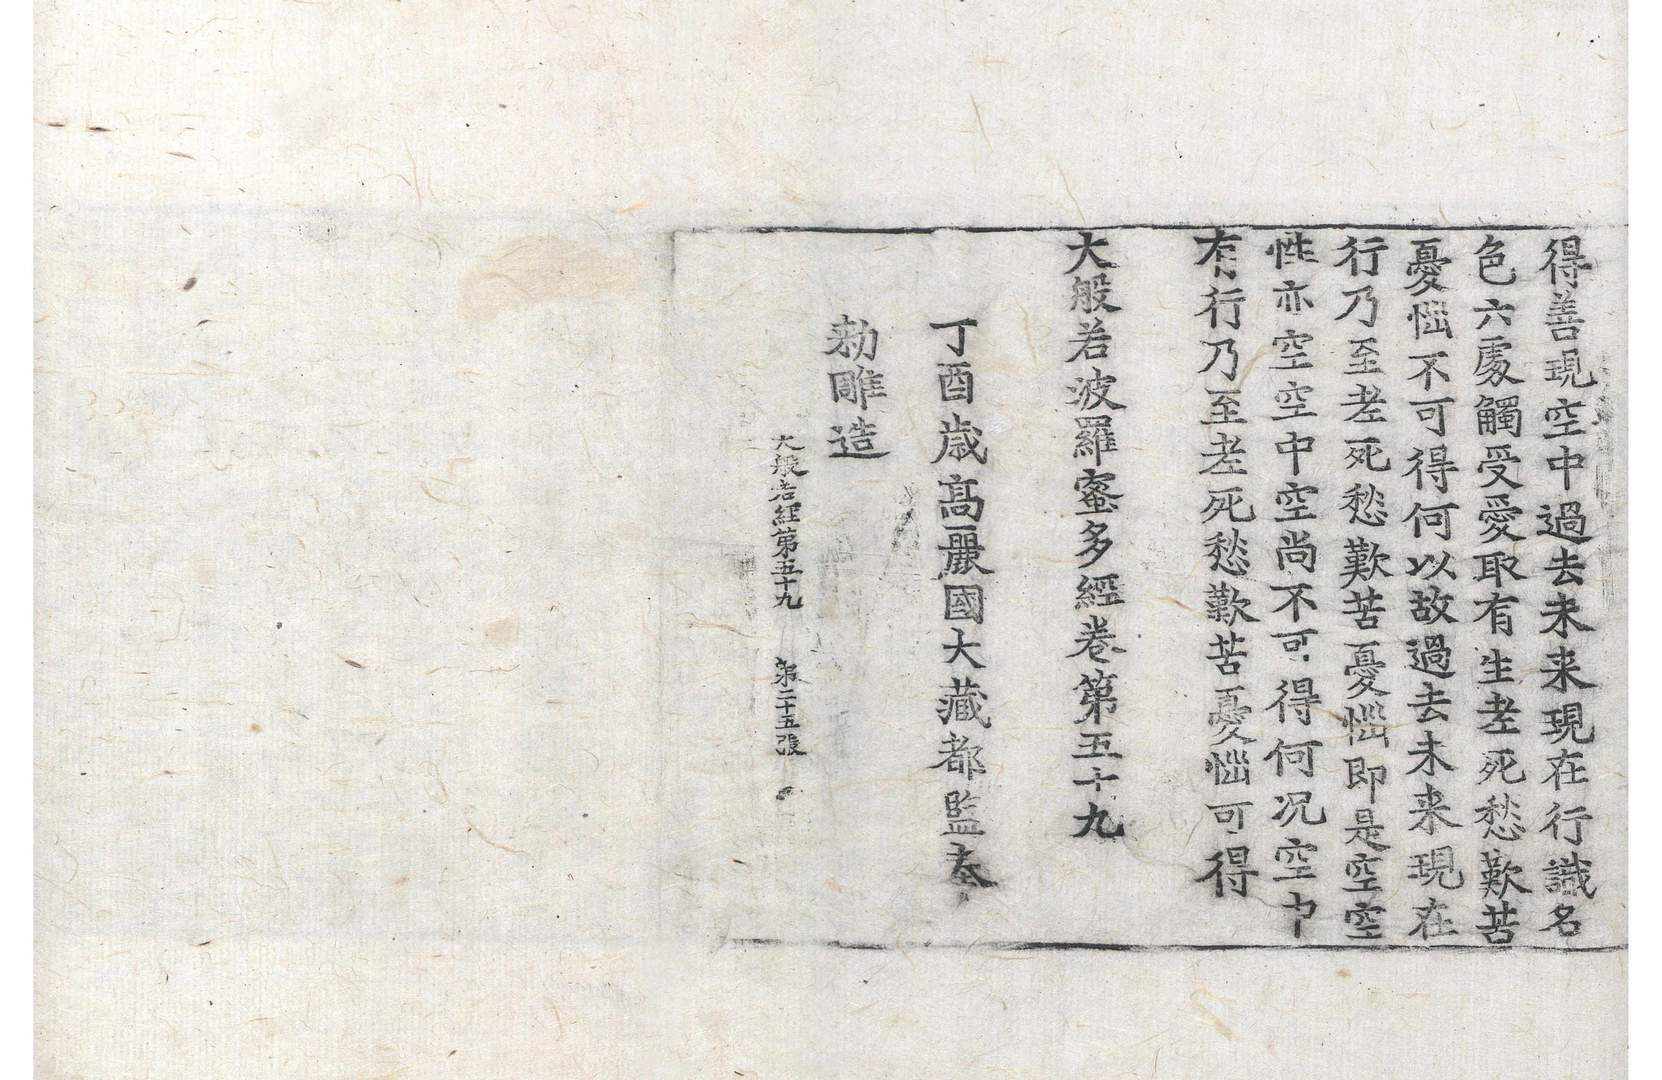 得善現空中過去未来現在行識名
色六處觸受愛取有生老死愁歎苦
憂惱不可得何以故過去未来現在
行乃至老死愁歎苦憂惱即是空空
性亦空空中空尚不可得何况空中
有行乃至老死愁歎苦憂惱可得
大般若波羅蜜多經卷第五十九
丁酉歳高麗國大藏都監奉
勅雕造
大般若經第五十九 第二十五張